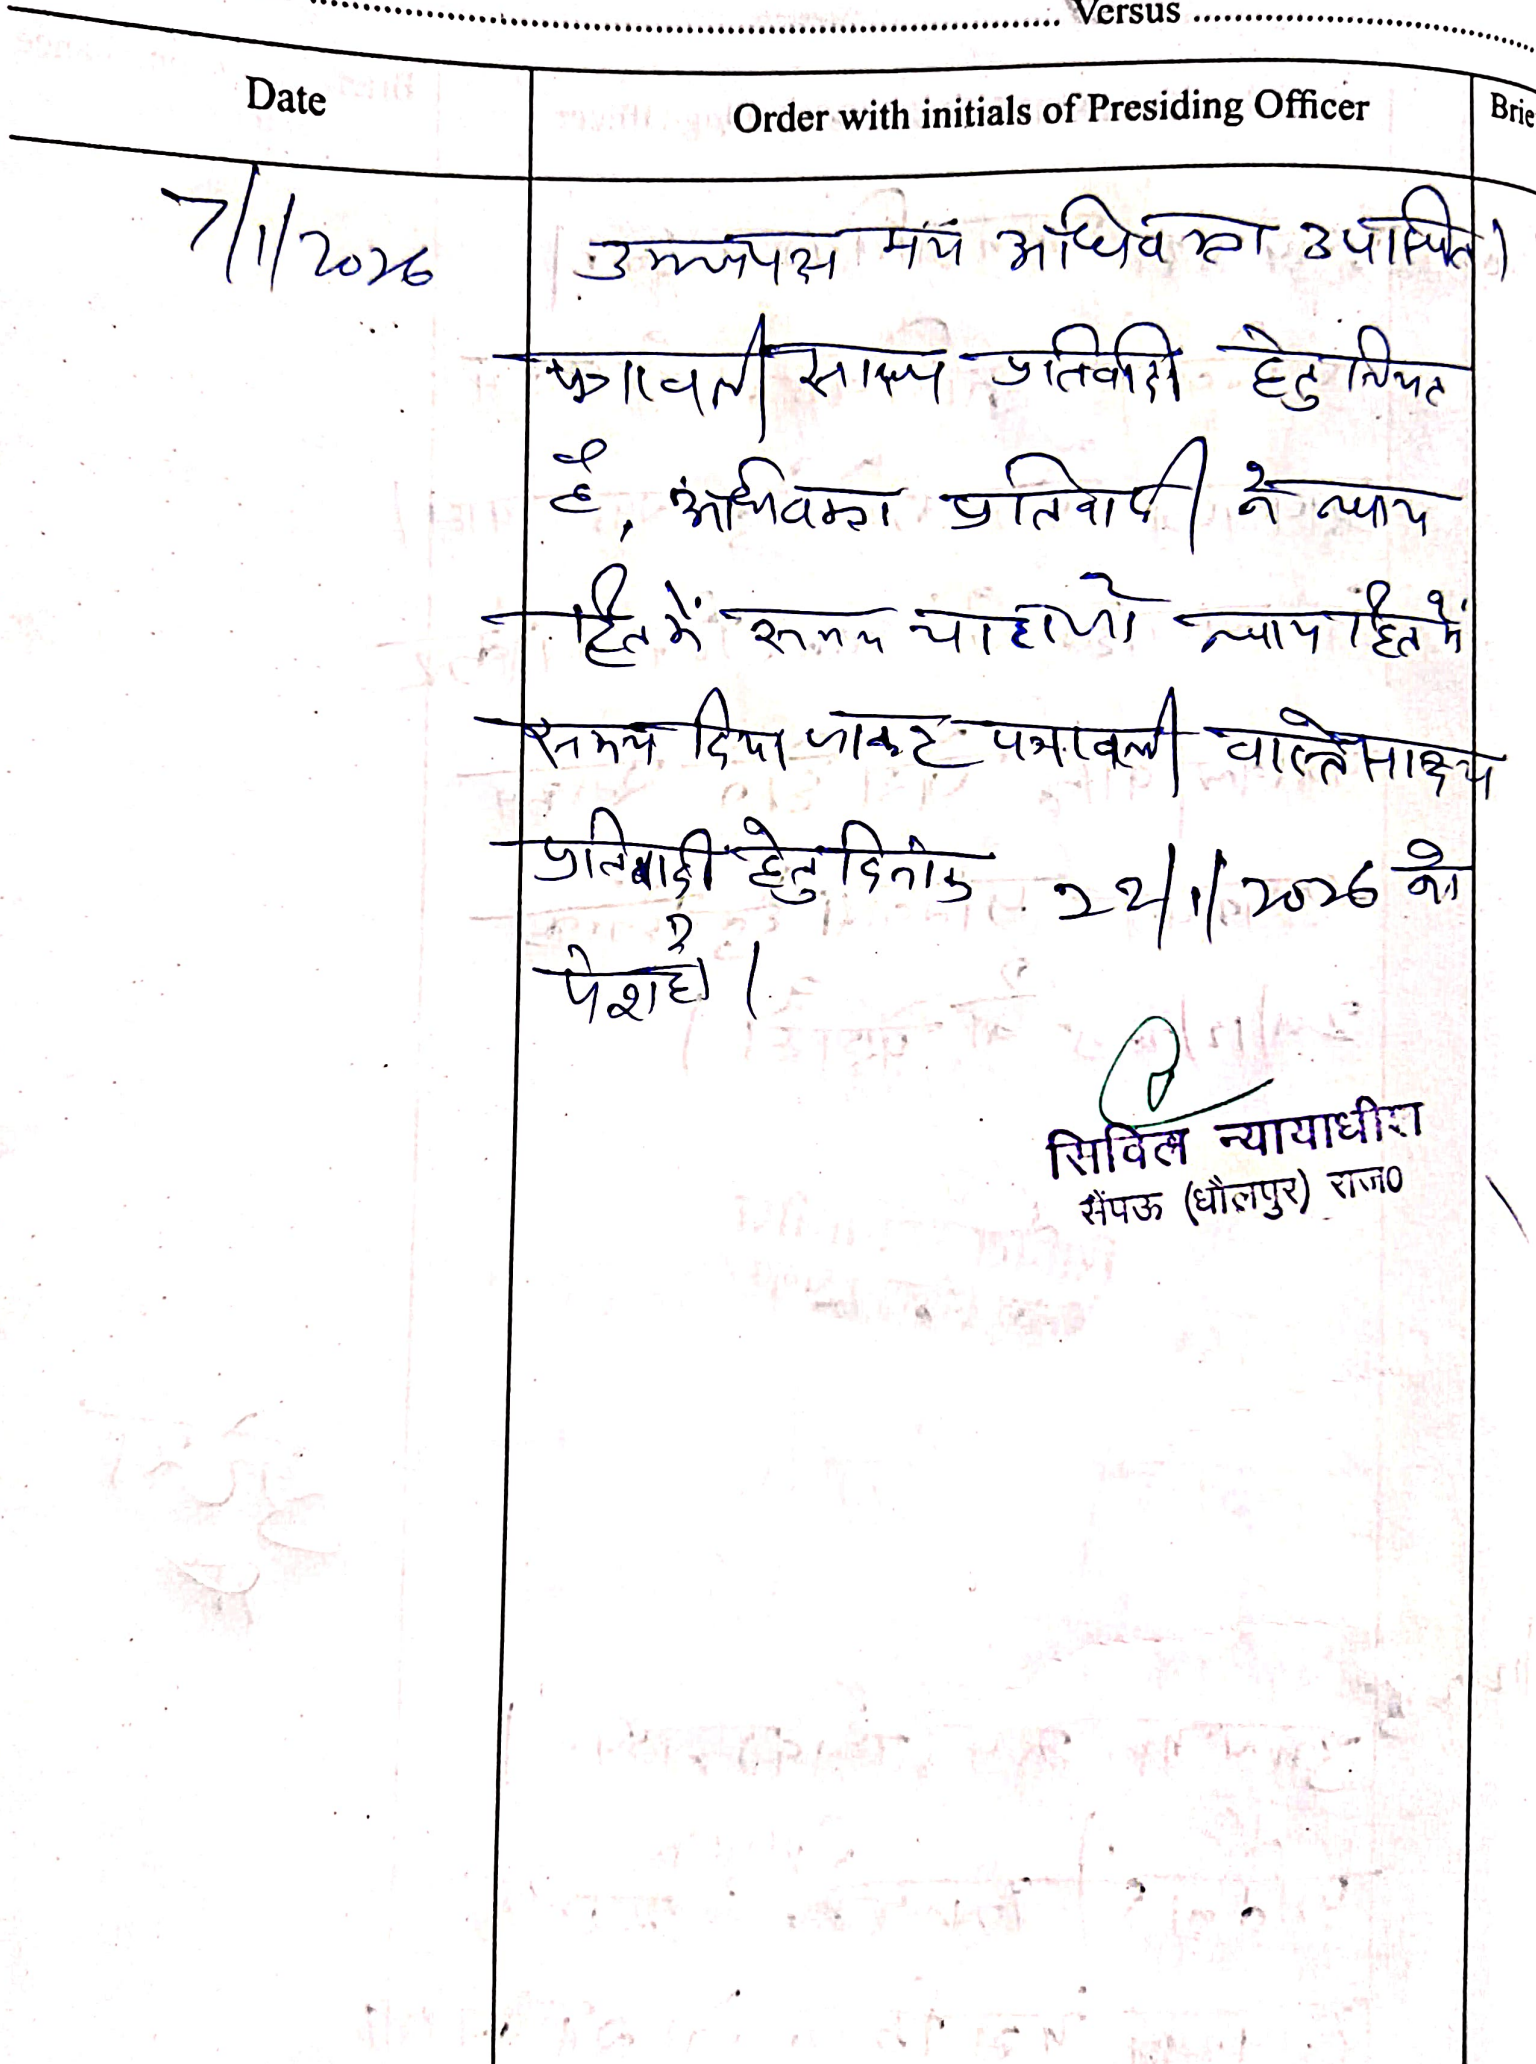 Versus
Date Order with initials of Presiding Officer Brie
7/1/2026 उभयपक्ष मय अधिवक्ता उपस्थित।
पत्रावली साक्ष्य प्रतिवादी हेतु नियत
है, अधिवक्ता प्रतिवादी ने न्याय
हित में समय चाहा जो न्याय हित में
समय दिया जाकर पत्रावली वास्ते साक्ष्य
प्रतिवादी हेतु दिनांक 22/1/2026 को
पेश हो।
सिविल न्यायाधीश
सैंपऊ (धौलपुर) राज0